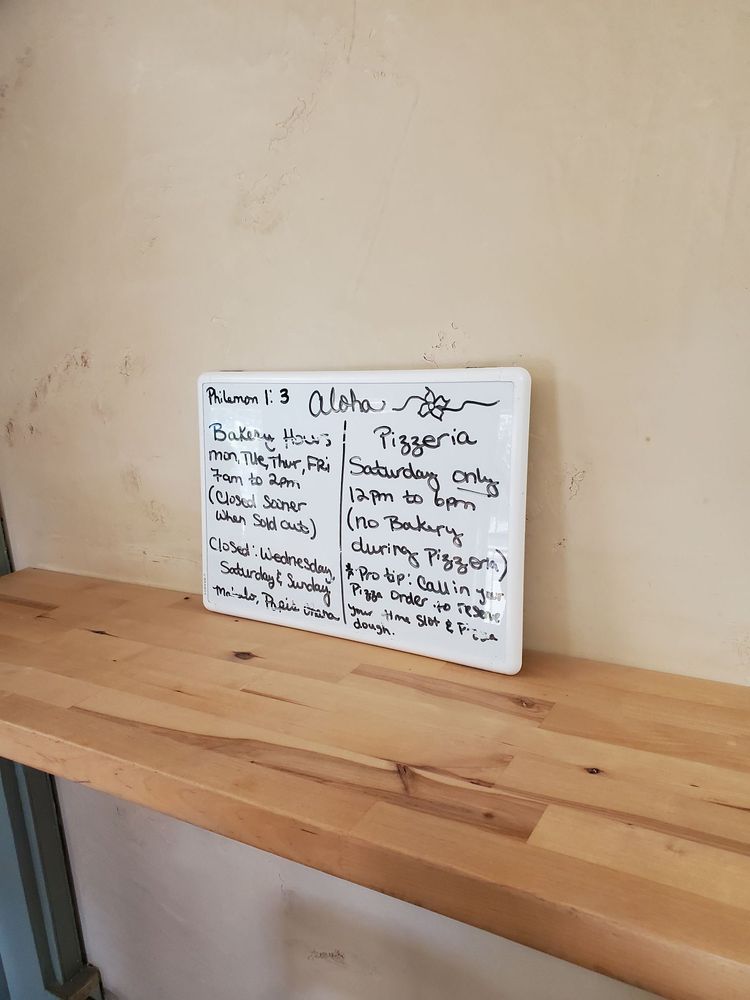 Philemon 1:3
Aloha
Bakery Hours
mon, Tue, Thur, Fri
7am to 2pm
(Closed sooner
when Sold out)
Closed: Wednesday,
Saturday & Sunday
Mahalo,
Pizzeria
Saturday only
12pm to 6pm
(no Bakery
during Pizzeria)
* Pro tip: Call in your
Pizza Order to reserve
your time slot & Pizza
dough.